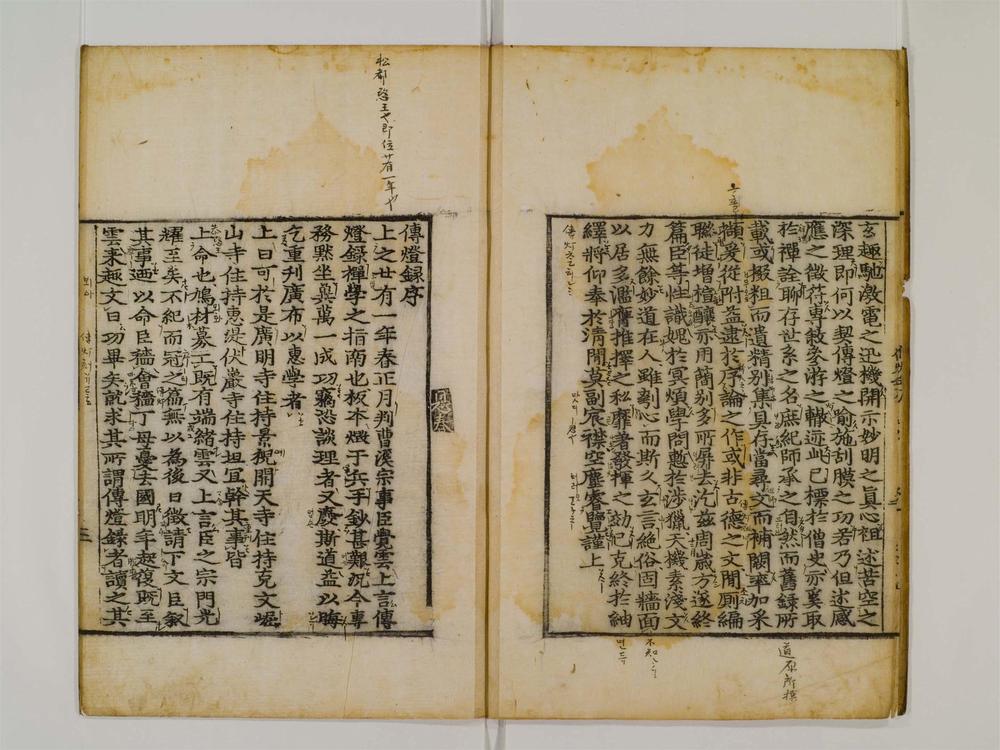 玄趣馳激電之迅機開示妙明之真心祖述苦空之
深理即何以契傳燈之喻施刮膜之功若乃但述感
應之徵符專敘參遊之轍迹此已標於僧史亦奚取
於禪詮聊存世系之名庶紀師承之自然而舊錄所
載或掇粗而遺精別集具存當尋文而補闕率加采
擷爰從附益逮於序論之作或非古德之文閒厠編
聯徒增楦釀亦用簡別多所屏去汔茲周歲方遂終
篇臣等性識媿於冥煩學問慙於涉獵天機素淺文
力無餘妙道在人雖刳心而斯久玄言絶俗固牆面
以居多濫膺推擇之私靡著發揮之効已克終於紬
繹將仰奉於清閒莫副宸襟空塵睿覽謹上
道原所撰
不知
傳燈錄序
上之廿有一年春正月判曹溪宗事臣覺雲上言傳
燈錄禪學之指南也板本燬于兵手鈔甚難況今專
務默坐冀萬一成功竊恐談理者又廢斯道益以晦
乞重刊廣布以惠學者
上曰可於是廣明寺住持景猊開天寺住持克文崛
山寺住持惠湜伏巖寺住持坦宜幹其事皆
上命也鳩材募工既有端緒雲又上言臣之宗門光
耀至矣不紀而冠之篇無以為後日徵請下文臣叙
其事迺以命臣穡會穡丁母憂去國明年起復既至
雲來趣文曰功畢矣就求其所謂傳燈錄者讀之其
松都恭王也即位廿有一年也